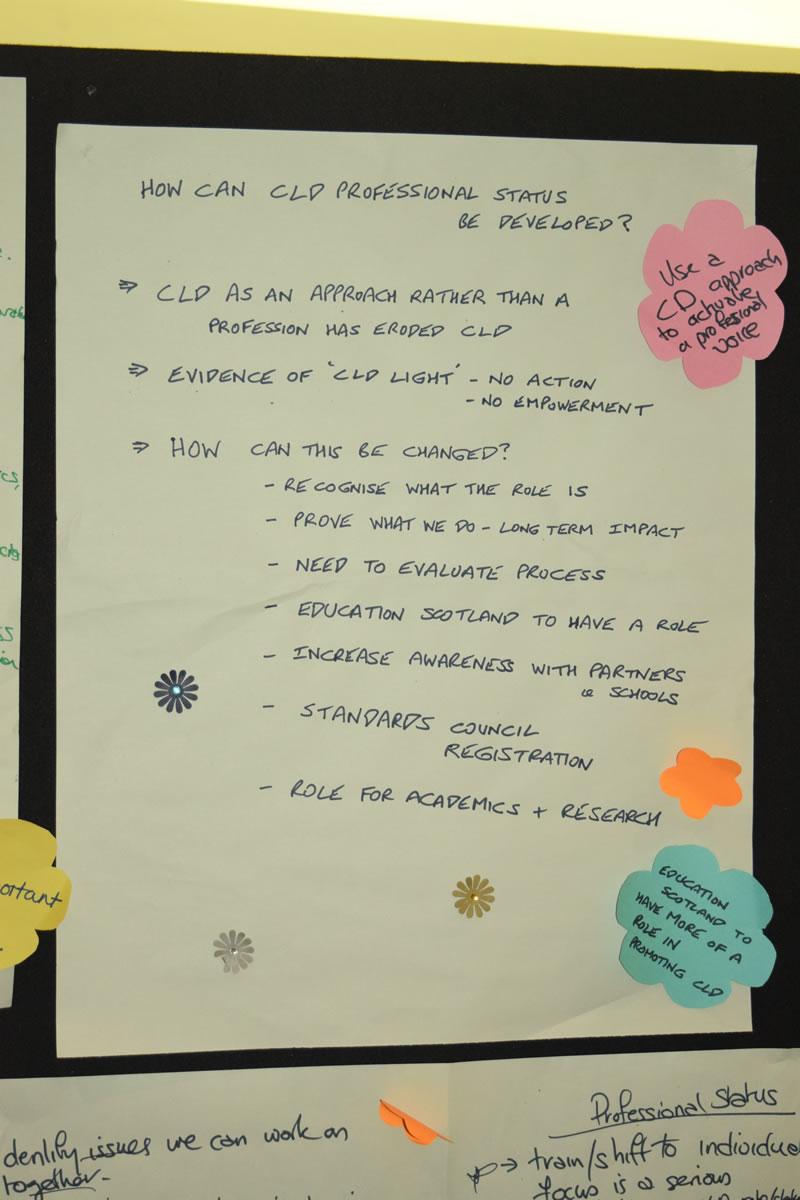 HOW CAN CLD PROFESSIONAL STATUS
BE DEVELOPED?
⇒ CLD AS AN APPROACH RATHER THAN A
PROFESSION HAS ERODED CLD
⇒ EVIDENCE OF 'CLD LIGHT' - NO ACTION
- NO EMPOWERMENT
⇒ HOW CAN THIS BE CHANGED?
- RECOGNISE WHAT THE ROLE IS
- PROVE WHAT WE DO - LONG TERM IMPACT
- NEED TO EVALUATE PROCESS
- EDUCATION SCOTLAND TO HAVE A ROLE
- INCREASE AWARENESS WITH PARTNERS
ie SCHOOLS
- STANDARDS COUNCIL
REGISTRATION
- ROLE FOR ACADEMICS + RESEARCH
Use a
CD approach
to activate
a profesional
voice
EDUCATION
SCOTLAND TO
HAVE MORE OF A
ROLE IN
PROMOTING CLD
ortant
dentify issues we can work on
together.
Professional Status
→ train/shift to individua
focus is a serious